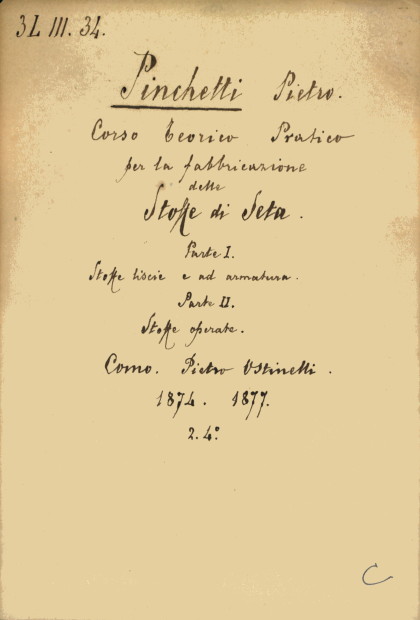 3L III. 34.
Pinchetti Pietro.
Corso Teorico Pratico
per la fabbricazione
delle
Stoffe di Seta.
Parte I.
Stoffe liscie e ad armatura.
Parte II.
Stoffe operate.
Como. Pietro Ostinelli.
1874. 1877.
2. 4º
C